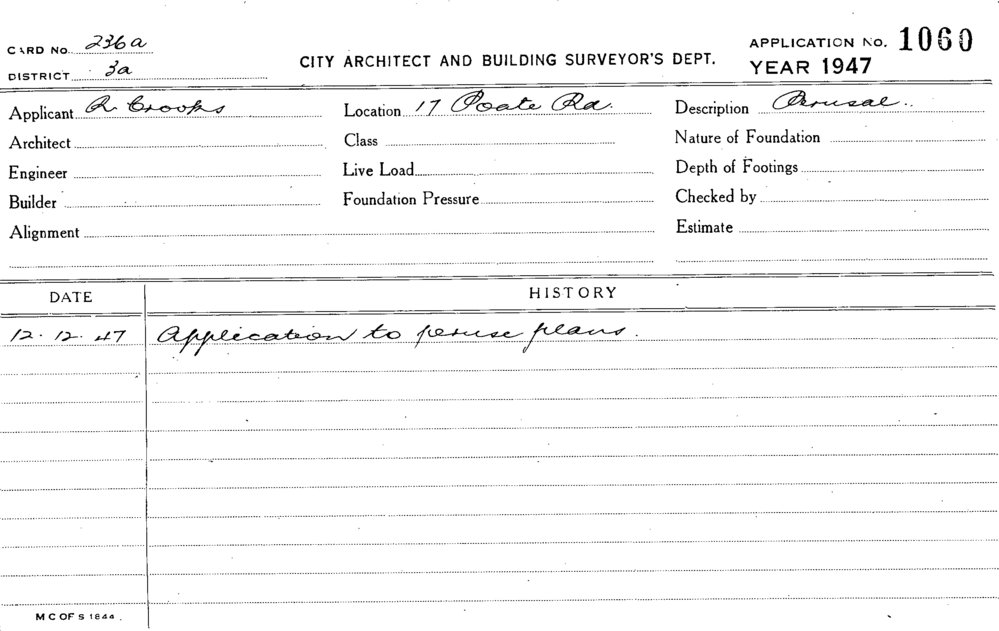 CARD No. 236a
CITY ARCHITECT AND BUILDING SURVEYOR'S DEPT.
APPLICATION No. 1060
DISTRICT 3a
YEAR 1947
Applicant R Crooks Location 17 Poate Rd. Description Perusal
Architect Class Nature of Foundation
Engineer Live Load Depth of Footings
Builder Foundation Pressure Checked by
Alignment Estimate
DATE HISTORY
12.12.47 Application to peruse plans.
M C OF S 1844.